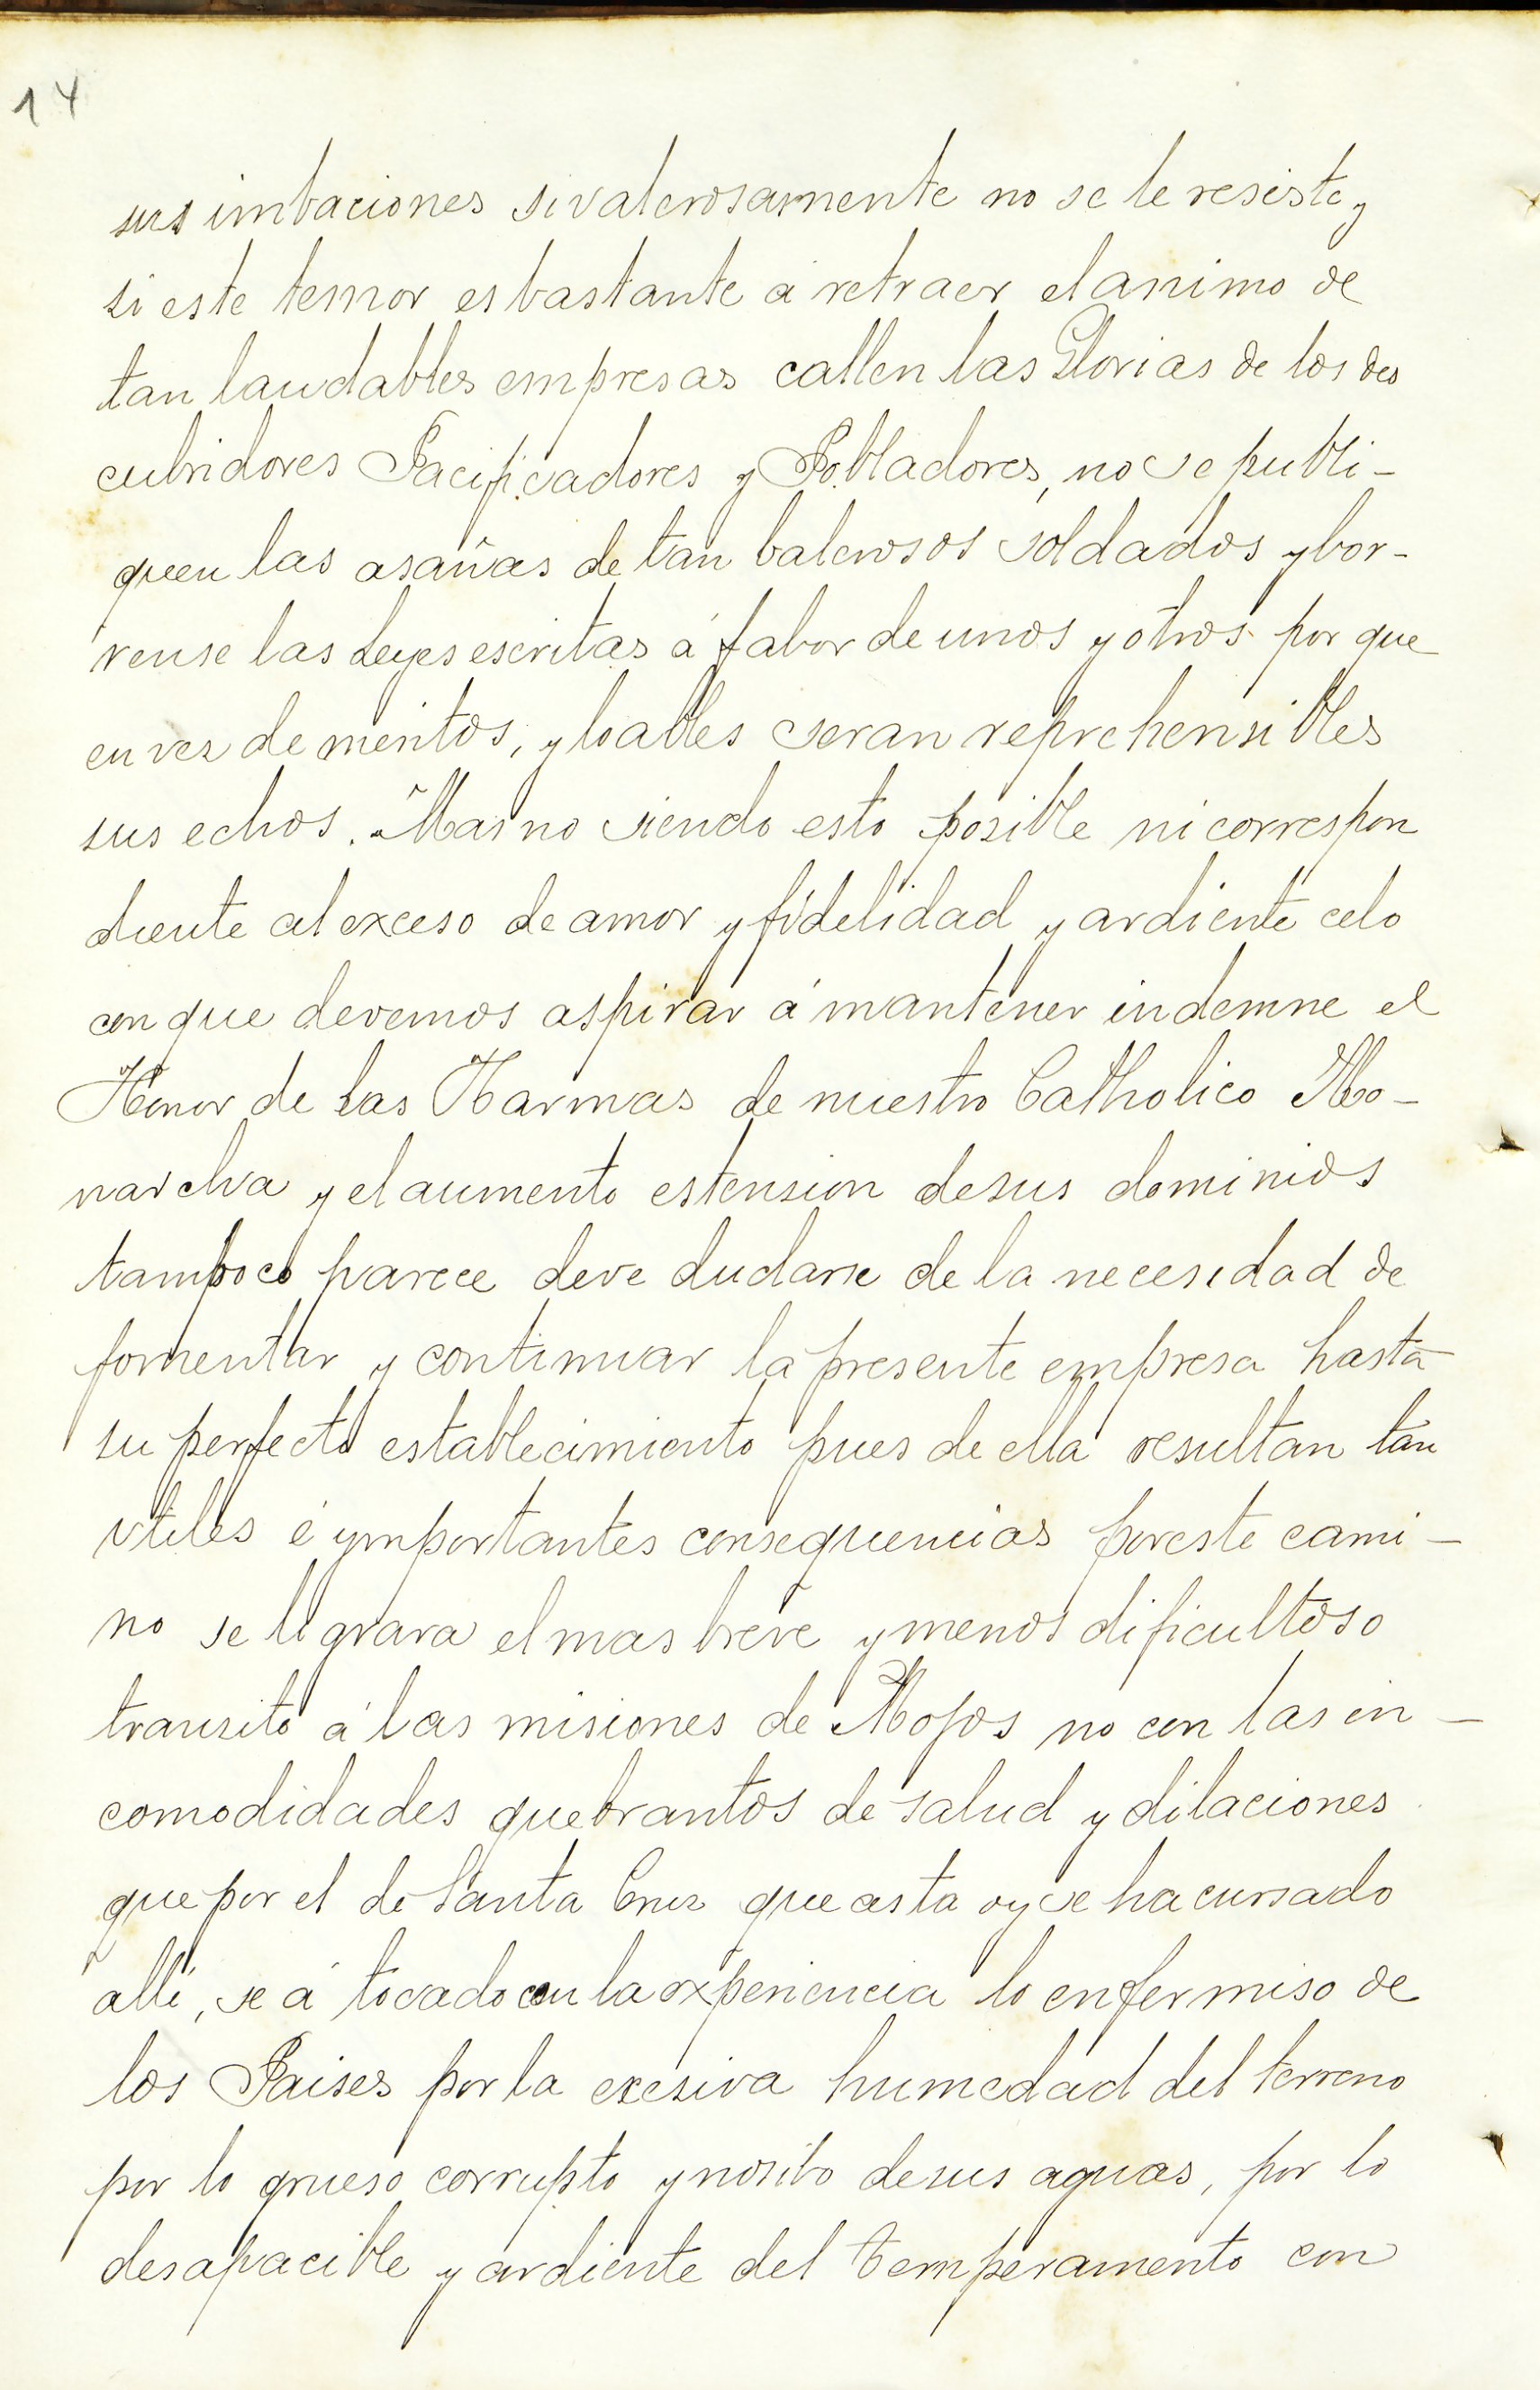 14
sus imbaciones si valerosamente no se le resiste y
si este temor es bastante á retraer el animo de
tan laudables empresas callen las Glorias de los des
cubridores Pacificadores y Pobladores, no se publi-
quen las asañas de tan balerosos soldados y bor-
rense las Leyes escritas á fabor de unos y otros por que
en vez de meritos, y loables seran reprehensibles
sus echos. Mas no siendo esto posible ni correspon
diente al exceso de amor y fidelidad y ardiente celo
con que devemos aspirar á mantener indemne el
Honor de las Harmas de nuestro Catholico Mo-
narcha y el aumento estension de sus dominios
tampoco parece deve dudarse de la necesidad de
fomentar y continuar la presente empresa hasta
su perfecto establecimiento pues de ella resultan tan
utiles é ymportantes consequencias por este cami-
no se lograra el mas breve y menos dificultoso
transito á las misiones de Mojos no con las in-
comodidades quebrantos de salud y dilaciones
que por el de Santa Cruz que asta oy se ha cursado
alli, se á tocado con la experiencia lo enfermiso de
los Paises por la exesiva humedad del terreno
por lo grueso corrupto y nosibo de sus aguas, por lo
desapacible y ardiente del temperamento con